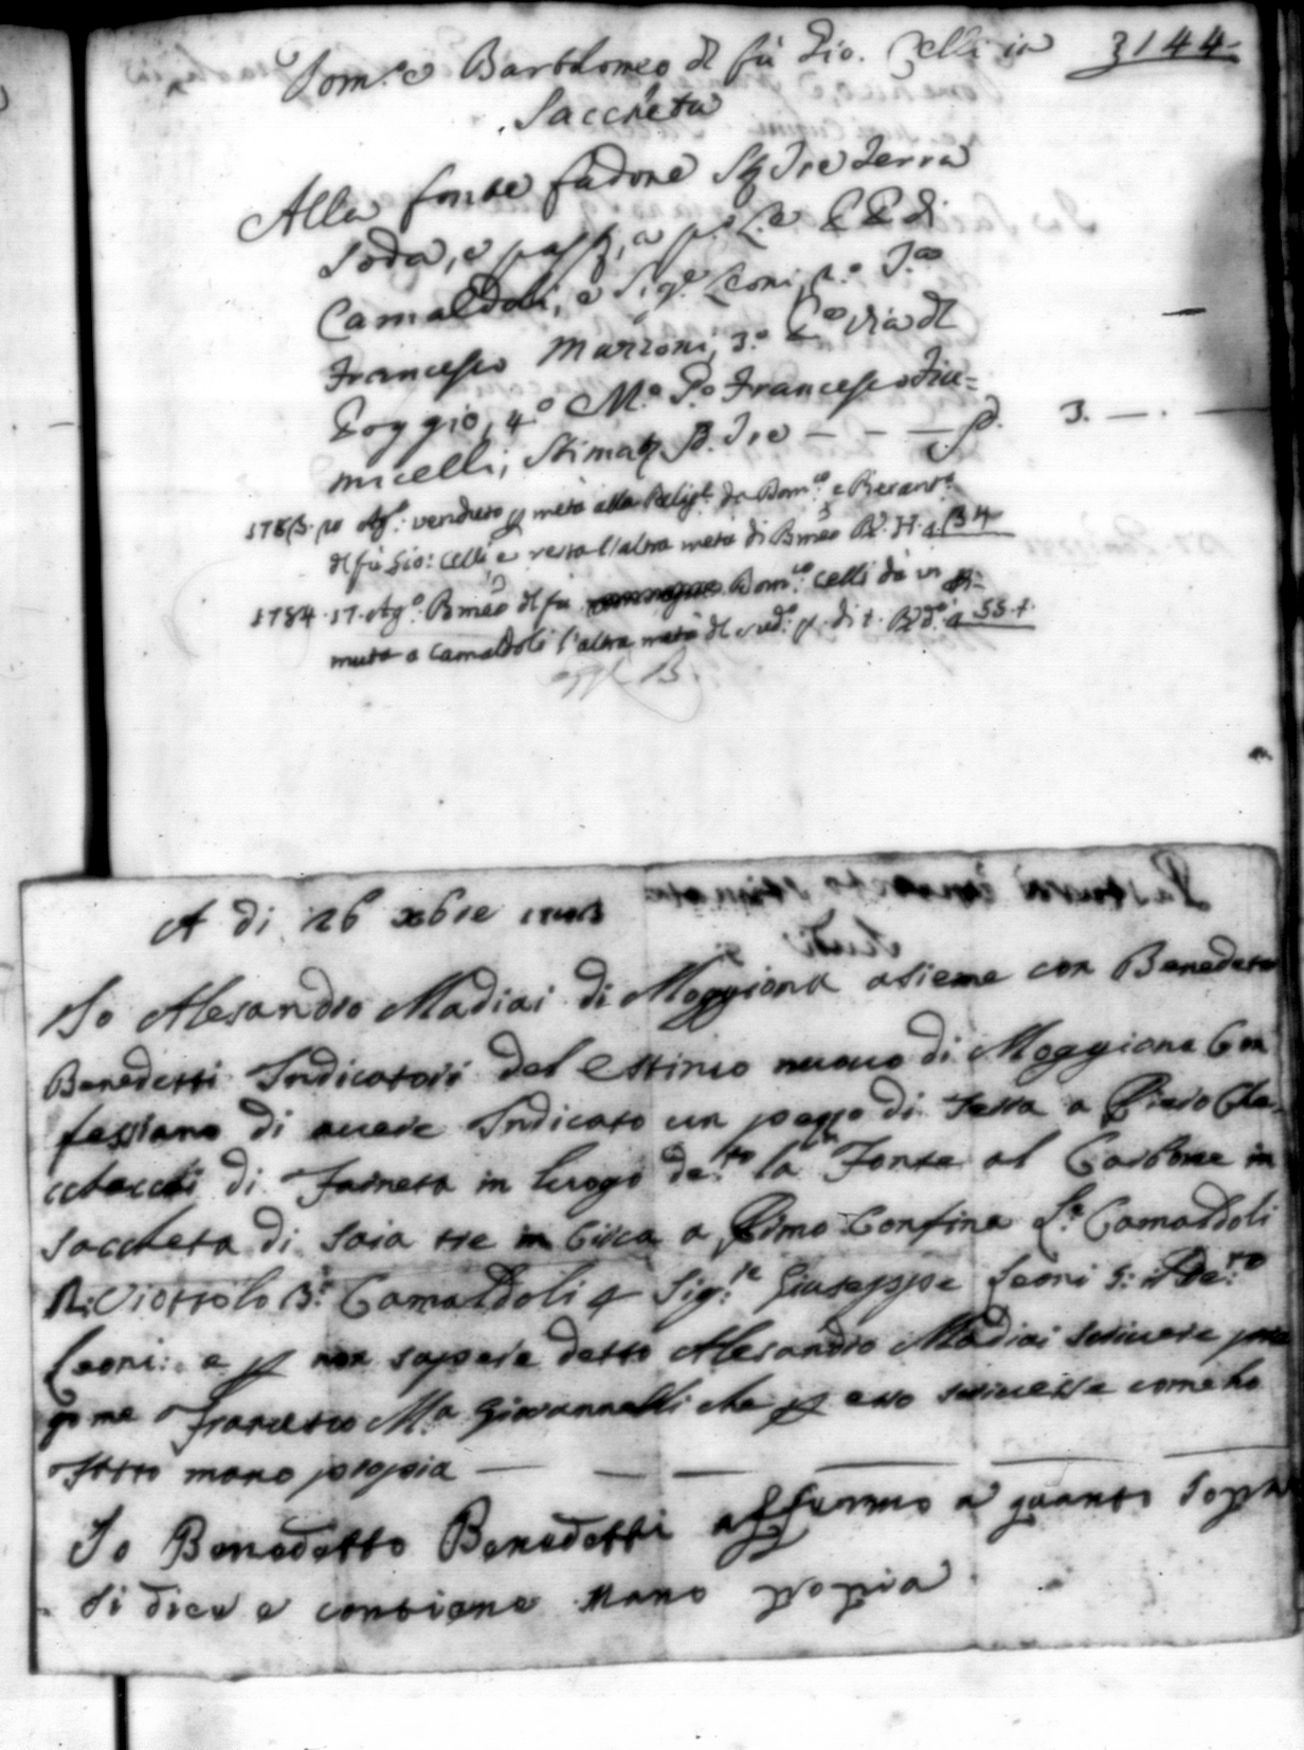 3144
Dom.co e Bartolomeo dl fù Gio. Celli in
Saccheta
Alla fonte fadone St.a Tre Terra
Soda, e pass., a p.o L.a E E di
Camaldoli, e Sig.e Leoni, 2.o
Francesco Marzoni, 3.o Via dl
Poggio, 4.o M.o P.o Francesco Fiu=
micelli, Stimata Tre — — — 3. — . —
Ag.o venduto p metà alla Relig.e da Dom.co e Pierant.o
dl fù Gio: Celli, e resta l'altra metà di Bmeo
1784. 17. Ag.o Bmeo dl fù Dom.co Celli dà in
muta a Camaldoli l'altra metà dl sud.o 55.t.
A di 26 xbre
Io Alesandro Madiai di Moggiona asieme con Benedeto
Benedetti Indicatori del Estimo nuouo di Moggiona Con
fessiano di auere Indicato un pezzo di terra a Piero
di Farneta in luogo de.to la Fonte al Carbone in
Saccheta di Saia tre in Circa a Pimo Confina L.e Camaldoli
Viottolo 3: Camaldoli 4 Sig.re Giuseppe Leoni 5: il De.to
Leoni: e p non sapere detto Alesandro Madiai scriuere pre
go me Francesco M.a Giovannelli che p eso scriuesse come ho
fatto mano propia — — — — — —
Io Benedetto Benedetti affermo a quanto Sopra
Si dice e contiene Mano propia